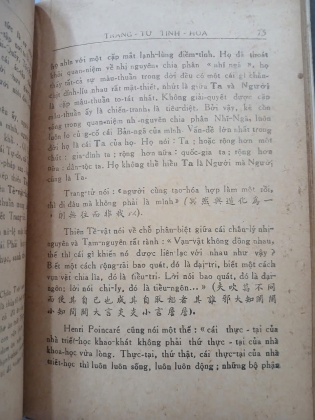 TRANG - TỬ TINH - HOA 75
họ nhìn với một cặp mắt lạnh-lùng điềm-tĩnh. Họ đã thoát
khỏi quan-niệm về nhị nguyên, chia phân « nhĩ ngã », họ
thấy tất-cả sự mâu-thuẫn trong đời đều có một cái gì thân-
thiết dính-líu nhau rất mật-thiết, nhứt là giữa Ta và Người
cặp mâu-thuẫn to-tát nhất. Không giải-quyết được
mâu-thuẫn ấy là chiến-tranh là tiêu-diệt. Bởi vậy, kẻ
trong quan-niệm nhị-nguyên chia phân Nhĩ-Ngã, luôn
luôn lo củng-cố cái Bản-ngã của mình. Vấn-đề lớn nhất trong
đời họ là cái Ta của họ. Họ nói : Ta ; hoặc rộng hơn một
: gia-đình ta ; rộng hơn nữa : quốc-gia ta ; rộng hơn
nữa : dân-tộc ta. Họ không thể hiểu Ta là Người mà Người
cũng là Ta.
Trang-tử nói : « người cùng tạo-hóa hợp làm một rồi,
thì đi đâu mà không phải là mình »
則無往而非我
Thiên Tề-vật nói về chỗ phân-biệt giữa cái chân-lý nhị-
nguyên và Tam-nguyên rất rành : « Vạn-vật không đồng nhau,
thế thì cái gì khiến nó được liên-lạc với nhau như vậy ?
Biết một cách rộng-rãi bao quát, đó là đại-trí, biết một cách
vụn-vặt chia lìa, đó là tiểu-trí. Lời nói bao quát, đó là đại-
ngôn; lời nói chi-ly, đó là tiểu-ngôn... » (夫吹萬不同
而使其自己也咸其自取怒者其誰邪大知閑閑
小知閒閒大言炎炎小言詹詹).
Henri Poincaré cũng nói một thể : « cái thực - tại của
nhà triết-học khao-khát không phải thứ thực - tại của nhà
khoa-học vừa lòng. Thực-tại, thứ thật, cái thực-tại của nhà
triết-học thì luôn luôn sống, luôn luôn động ; những bộ phận